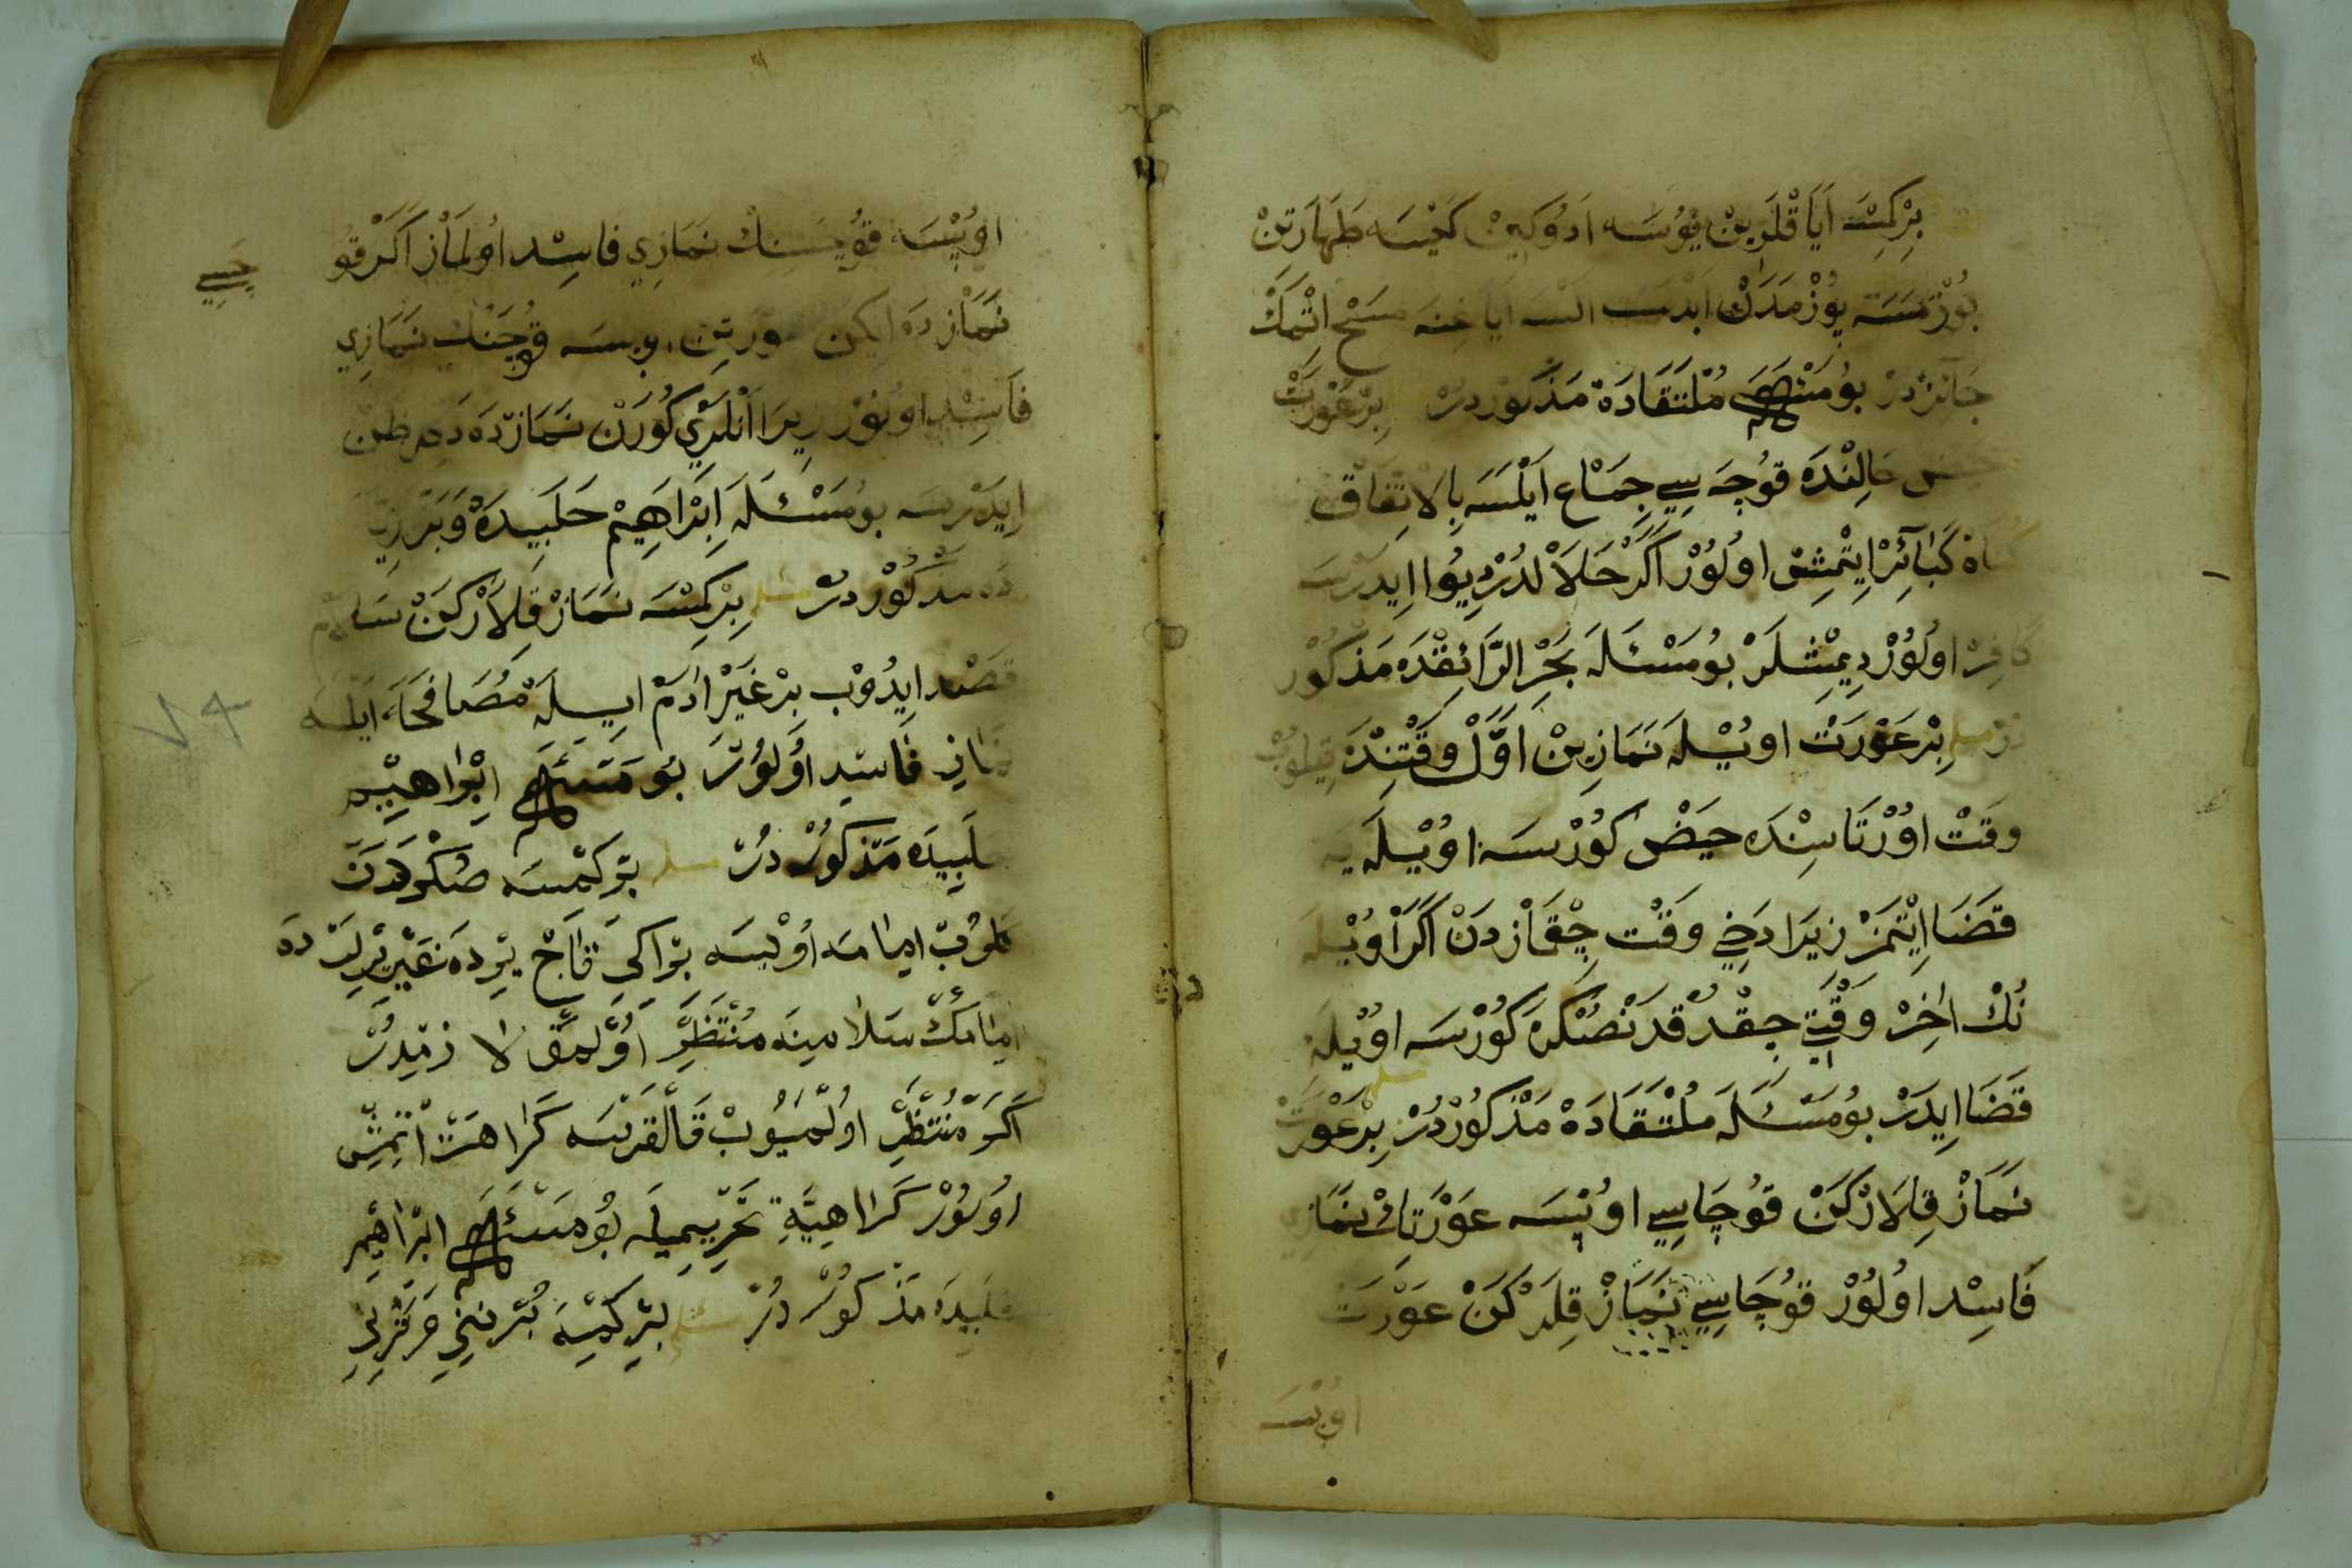 بِرْكِمْسَه اَيَاقْلَرِينْ يُوُسَه اَدُوكِينْ كَيْسَه طَهَارَتِنْ
بُوُزْمَسَه يُوُزْمَدَاڭ اَبْدَسْت اَلْسَه اَيَاغِنَه مَسْحْ اِتْمَكْ
جَآئِزْدُرْ بُومَسْئَلَه مُلْتَقَادَهْ مَذْكُورْدُرْ بِرْعَوْرَتْ
حَالِنْدَه قُوجَه سِي جِمَاع اَيْلَسَه بِالْاِتِفَاقْ
كَبَآئِرْ اِيتْمِشْ اوُلُوُرْ اَكَرْ حَلَالْدُرْ دِيُوا اِيدَرْسَه
كَافِرْ اوُلُوُرْ دِيمِشْلَرْ بُومَسْئَلَه بَحْرِ الرَّائِقْدَه مَذْكُوُرْ
دُرْ مسله بِرْعَوْرَتْ اوُيْلَه نَمَازِينْ اَوَّلْ وَقْتِنْدَه قِيلُوبْ
وَقَتْ اوُرْتَاسِنْدَه حَيَضْ كُوُرْسَه اوُيْلَه يِه
قَضَا اِيْتْمَزْ زِيرَا دَخِي وَقْت چِقْمَازْدَنْ اَكَرْ اوُيْلَه
نُكْ اٰخِرْ وَقْتِي چِقْدُ قدَنْصُكْرَه كُوُرْسَه اوُيْلَه
قَضَا اِيدَرْ بُومَسْئَلَه مُلْتَقَادَهْ مَذْكُوُرْدُرْ مسله بِرْعَوْرَتْ
نَمَازْ قِلَارْكَنْ قُوجَاسِي اوُپْسَه عَوْرَتِڭْ نَمَازِي
فَاسِدْ اوُلُوُرْ قُوجَاسِي نَمَازْ قِلَرْكَنْ عَوْرَتْ
اوُپْسَه
اوُپْسَه قُوجَسِنِڭْ نَمَازِي فَاسِدْ اوُلْمَازْ اَكَرْ قُو
جَسِي
نَمَازْدَه اِيكِنْ عورَتِن اوپسه قُوجَنِڭْ نَمَازِي
فَاسِدْ اوُلُوُرْ زِيرَا اَنْلَرِي كُورَنْ نَمَازْدَه دَكِلْ ظَنْ
اِيدَرْسَه بُومَسْئَلَه اِبْرَاهِيمْ حَلَبِيدَهْ وَبَزَّزِيَّه
دَه مَذْكُوُرْدُرْ مسله بِرْكِمْسَه نَمَازْ قِلَارْكَنْ سَلَامْ
قَصْد اِيدُوبْ بِرْ غَيْرِ اٰدَمْ اِيلَه مُصَافَحَه اَيْلَسَه
نَمَازِ فَاسِدِ اوُلُوُرْ بُومَسْئَلَه اِبْرٰاهِيْم
حَلَبِيدَه مَذْكُورْ دُرْ مسله بِرْكِمْسَه صُكْرَدَنْ
كَلُوبْ اِمَامَه اوُيْسَه بِرْ اِكِى قَاچْ يِرْدَه غَيْرِ يِرْلَرْدَه
اِمَامِڭْ سَلَامِينَه مُنْتَظِرْ اوُلْمَقْ لَا زِمْدُرْ
اَكَرْ مُنْتَظِرْ اوُلْمَيُوبْ قَالْقَرْسَه كَرَاهَتْ اِتْمِشْ
اوُلُوُرْ كَرَاهِيَّةِ تَحْرِيمِيلَه بُومَسْئَلَه اِبْرَاهِيمْ
حَلَبِيدَه مَذْكُوُرْ دُرْ مسله بِرْكِمْسَه بُرْنِنِي